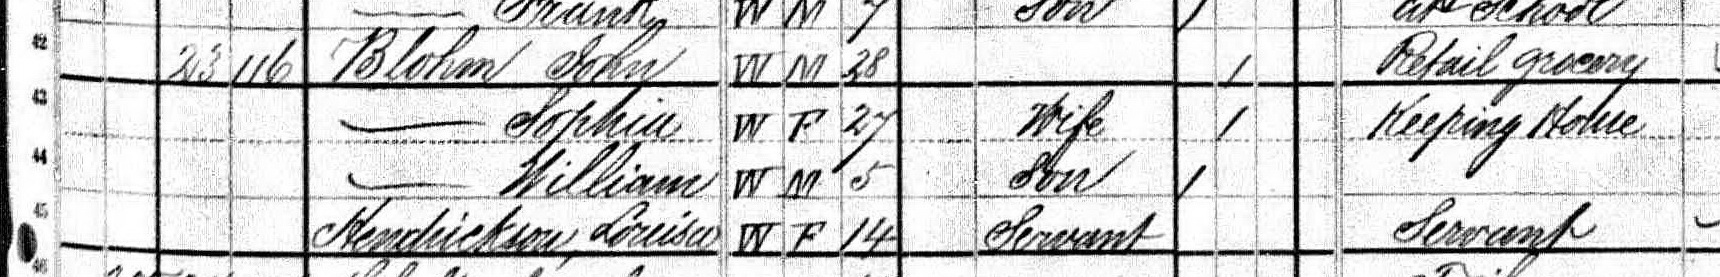 Frank W M 7 Son / at School
42 23 116 Blohm John W M 28 / Retail grocery
43 — Sophia W F 27 Wife / Keeping House
44 — William W M 5 Son /
45 Hendrickson, Louisa W F 14 Servant Servant
46